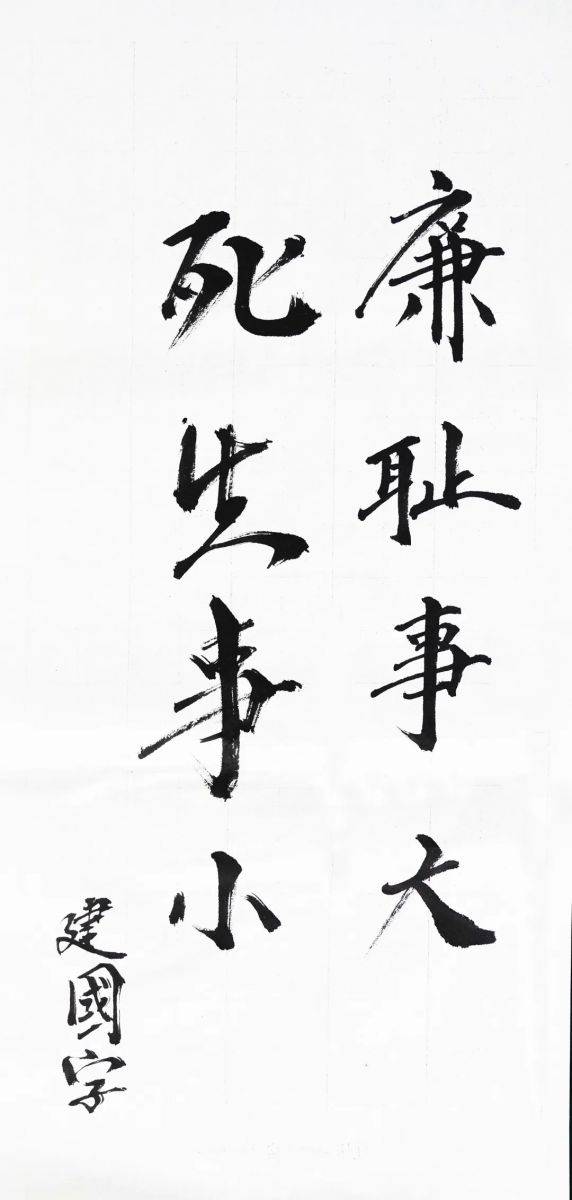 廉耻事大
死生事小
建國字